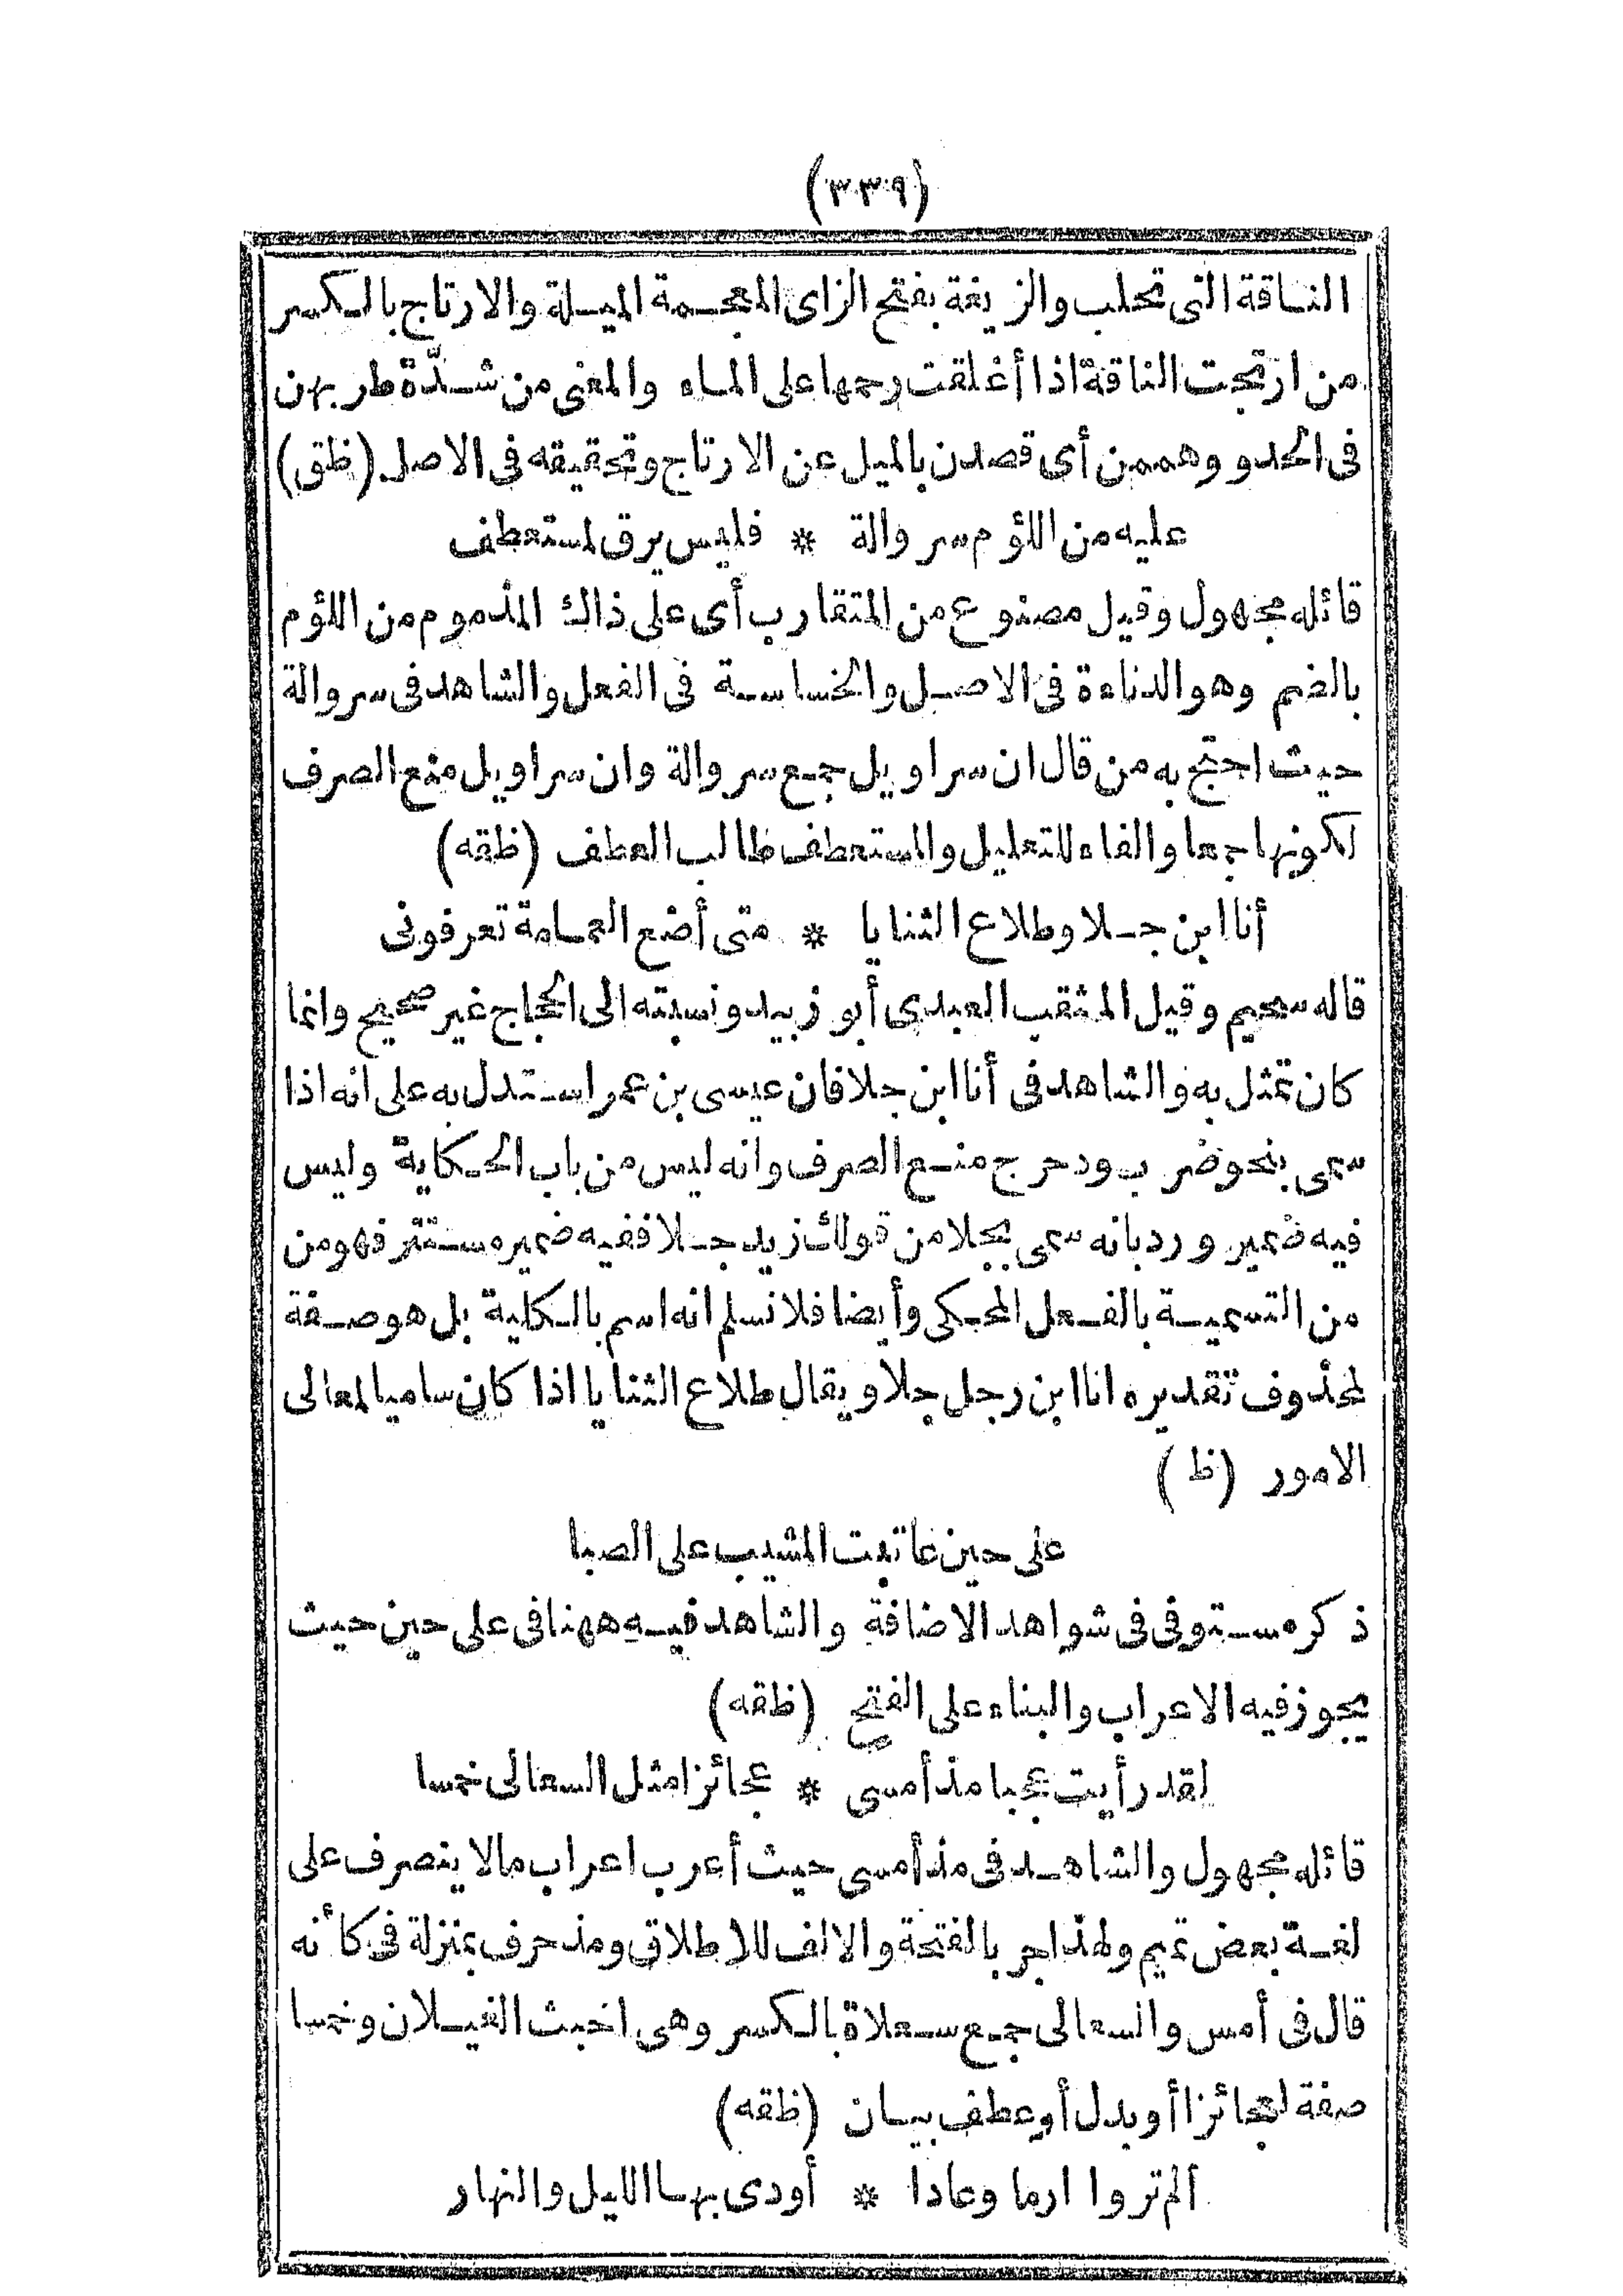 (٣٣٩)
الناقة التى تحلب والزيغة بفتح الزاى المعجمة الميلة والارتاج بالكسر
من ارتجت الناقة اذا أغلقت رحمها على الماء والمعنى من شدّة طربهن
فى الحدو وهممن أى قصدن بالميل عن الارتاج وتحقيقه فى الاصل (ظق)
عليه من اللؤم سروالة * فليس يرق لمستعطف
قائله مجهول وقيل مصنوع من المتقارب أى على ذاك المذموم من اللؤم
بالضم وهو الدناءة فى الاصل والخساسة فى الفعل والشاهد فى سروالة
حيث احتج به من قال ان سراويل جمع سروالة وان سراويل منع الصرف
لكونها جمعا والفاء للتعليل والمستعطف طالب العطف (ظقه)
أنا ابن جلا وطلاع الثنايا * متى أضع العمامة تعرفونى
قاله سحيم وقيل المثقب العبدى أبو زبيد ونسبته الى الحجاج غير صحيح وانما
كان تمثل به والشاهد فى أنا ابن جلا فان عيسى بن عمر استدل به على انه اذا
سمى بنحو ضرب ودحرج منع الصرف وانه ليس من باب الحكاية وليس
فيه ضمير ورد بانه سمى بجلا من قولك زيد جلا ففيه ضمير مستتر فهو من
من التسمية بالفعل المحكى وأيضا فلا نسلم انه اسم بالكلية بل هو صفة
لمحذوف تقديره انا ابن رجل جلا ويقال طلاع الثنايا اذا كان ساميا لمعالى
الامور (ظ)
على حين عاتبت المشيب على الصبا
ذكره مستوفى فى شواهد الاضافة والشاهد فيه ههنا فى على حين حيث
يجوز فيه الاعراب والبناء على الفتح (ظقه)
لقد رأيت عجبا مذ أمسى * عجائزا مثل السعالى خمسا
قائله مجهول والشاهد فى مذ أمسى حيث أعرب اعراب مالا ينصرف على
لغة بعض تميم ولهذا جر بالفتحة والالف للاطلاق ومذ حرف بمنزلة فى كأنه
قال فى أمس والسعالى جمع سعلاة بالكسر وهى اخبث الغيلان وخمسا
صفة لعجائزا أو بدل أو عطف بيان (ظقه)
ألم تروا ارما وعادا * أودى بها الليل والنهار